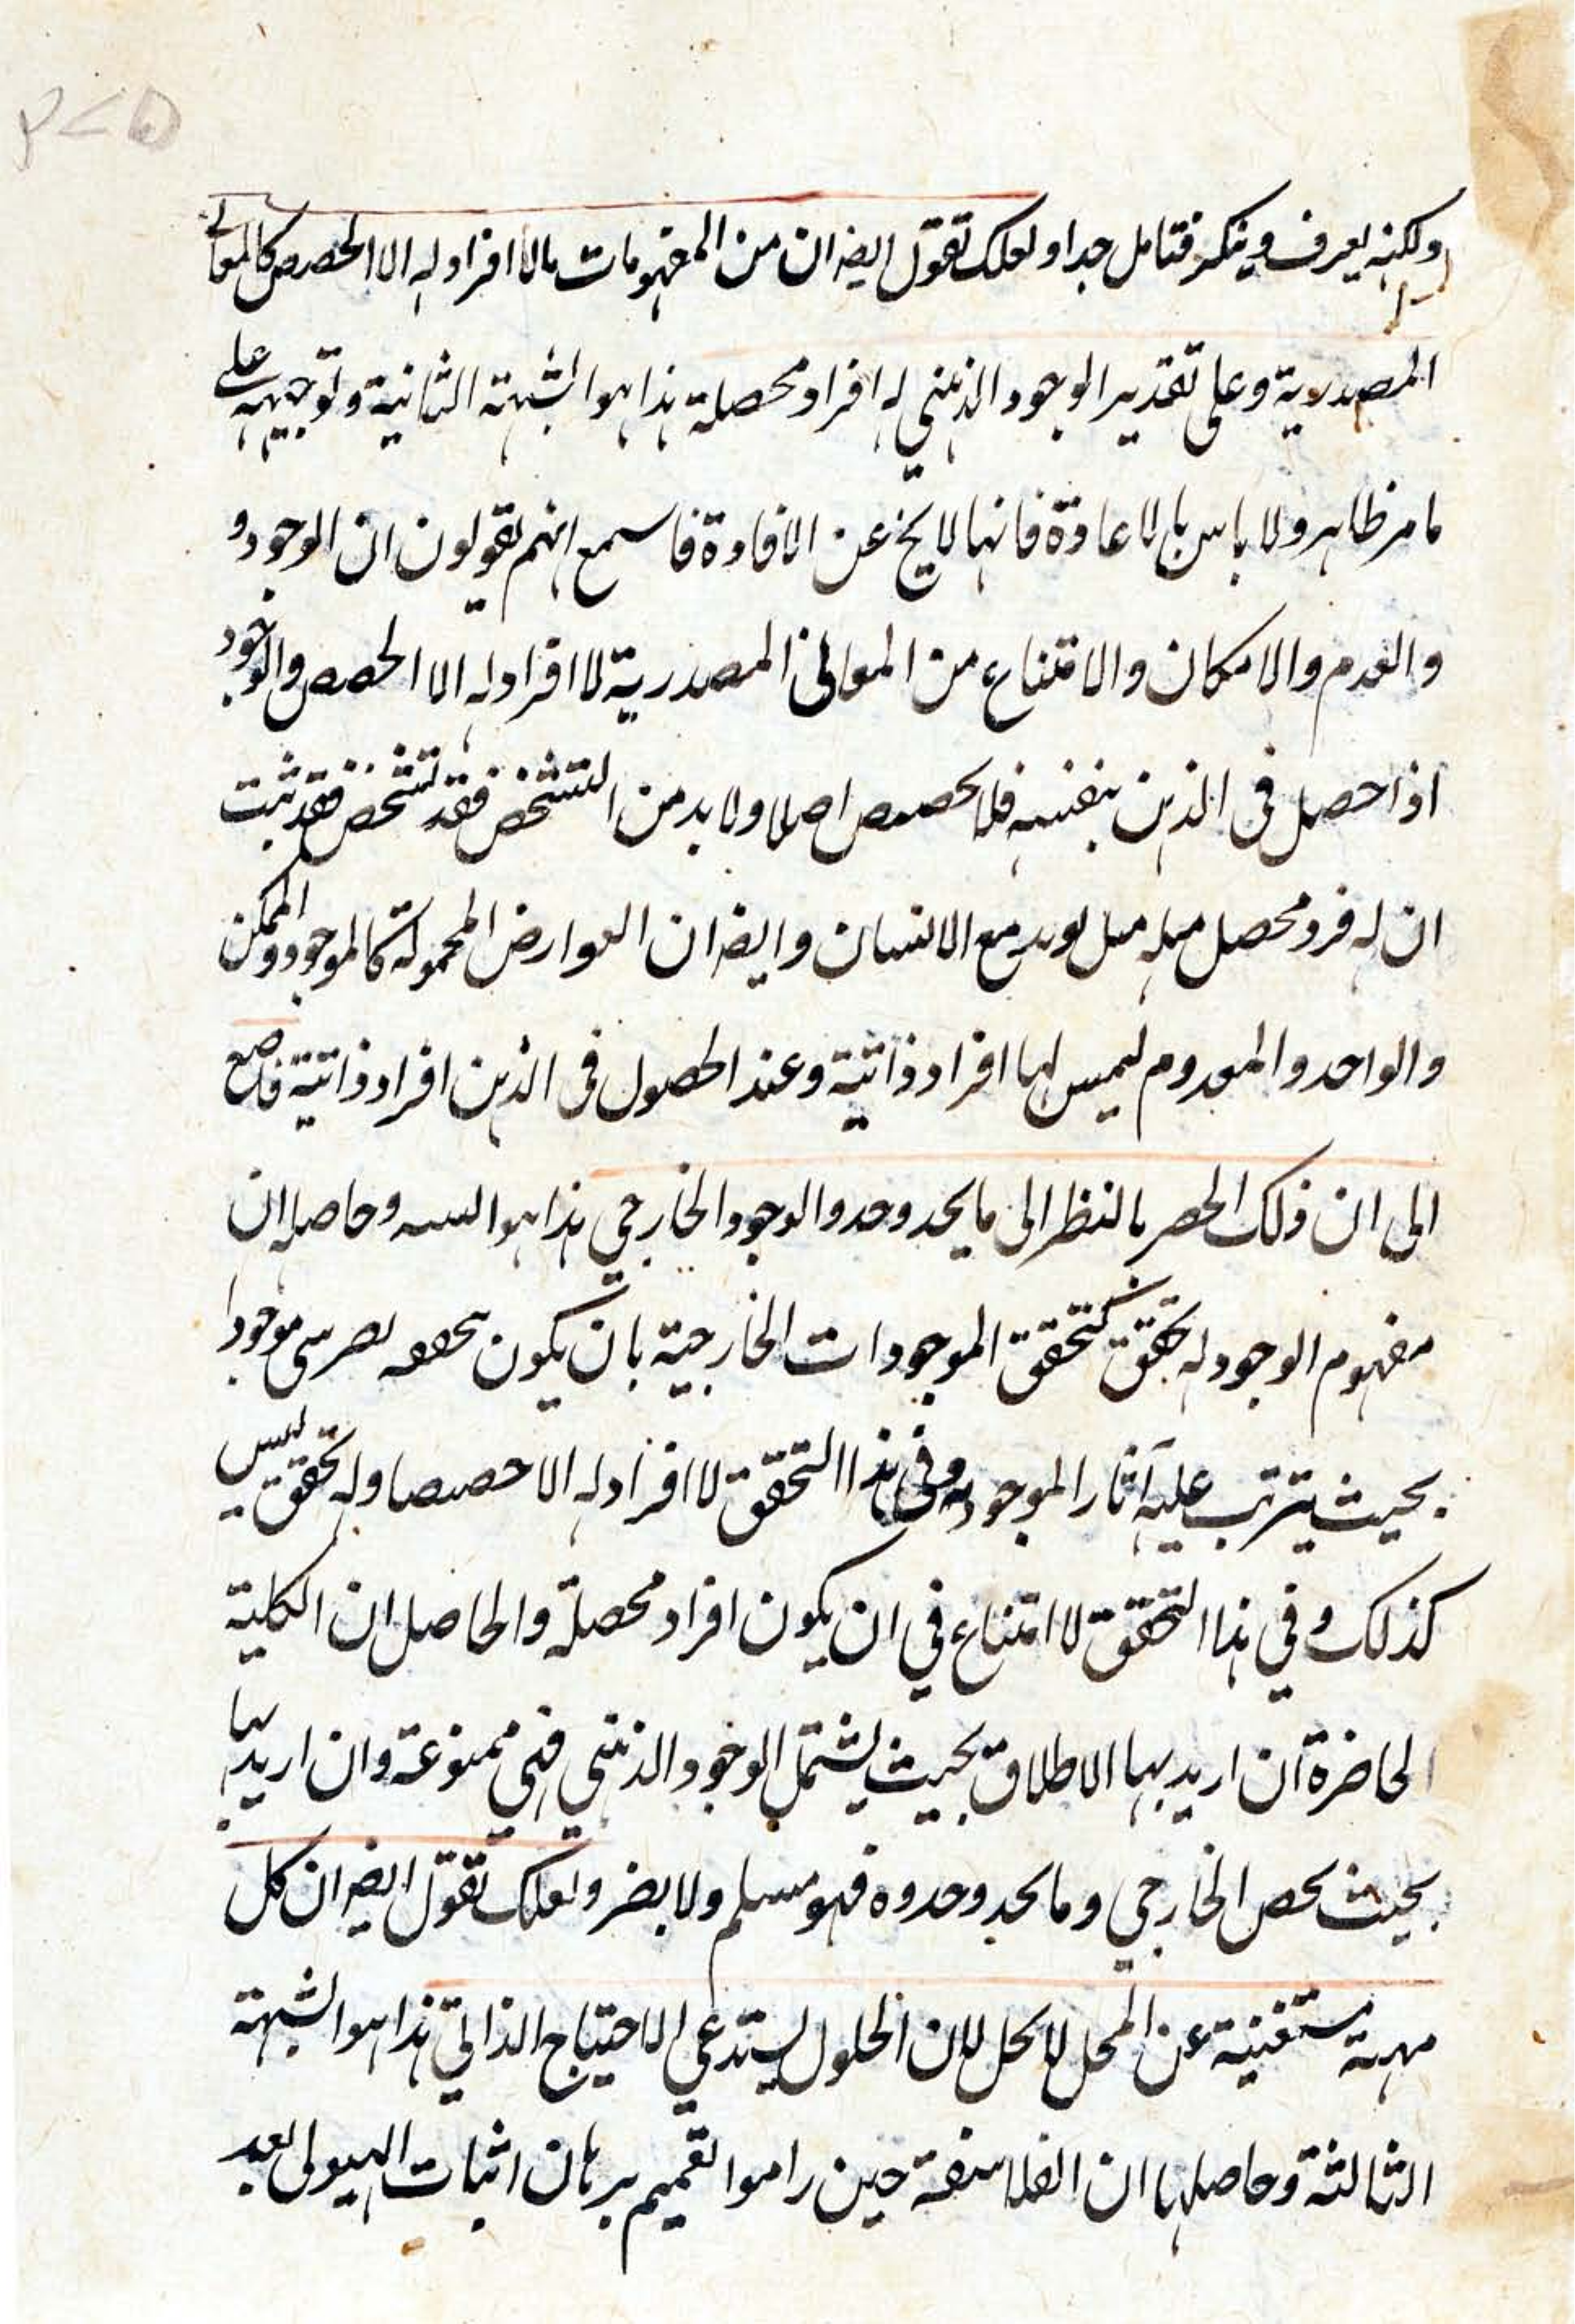 ولكنه يعرف وينكر فتامل جدا ولعلك تقول ايضا ان من المفهومات مالا افراد له الا الحصص كالمعاني
المصدرية وعلى تقدير الوجود الذهني له افراد محصلة هذا هو الشبهة الثانية وتوجيهه على
ما مر ظاهر ولا باس بالاعادة فانها لا يخ عن الافادة فاسمع انهم يقولون ان الوجود و
والعدم والامكان والامتناع من المعانى المصدرية لا افراد له الا الحصص والوجود
اذا حصل فى الذهن بنفسه فلا تحصص اصلا ولا بد من التشخص فقد تشخص فقد ثبت
ان له فرد محصل مع الانسان وايضا ان العوارض المحمولة كالموجود والممكن
والواحد والمعدوم ليس لها افراد ذاتية وعند الحصول فى الذهن افراد ذاتية
الى ان ذلك الحصر بالنظر الى ما يحذو حذو الوجود الخارجي هذا هو وحاصله ان
مفهوم الوجود له تحقق كتحقق الموجودات الخارجية بان يكون موجودا
بحيث يترتب عليه آثار الموجودية وفى هذا التحقق لا افراد له الا حصصا وله تحقق ليس
كذلك وفي هذا التحقق لا امتناع في ان يكون افراد محصلة والحاصل ان الكلية
الحاضرة ان اريد بها الاطلاق بحيث يشتمل الوجود الذهني فهي ممنوعة وان اريد بها
بحيث يخص الخارجي وما يحذو حذوه فهو مسلم ولا يضر ولعلك تقول ايضا ان كل
مهية مستغنية عن المحل لا يحل لان الحلول يستدعي الاحتياج الذاتي هذا هو الشبهة
الثالثة وحاصلها ان الفلاسفة حين راموا تعميم برهان اثبات الهيولى بعد